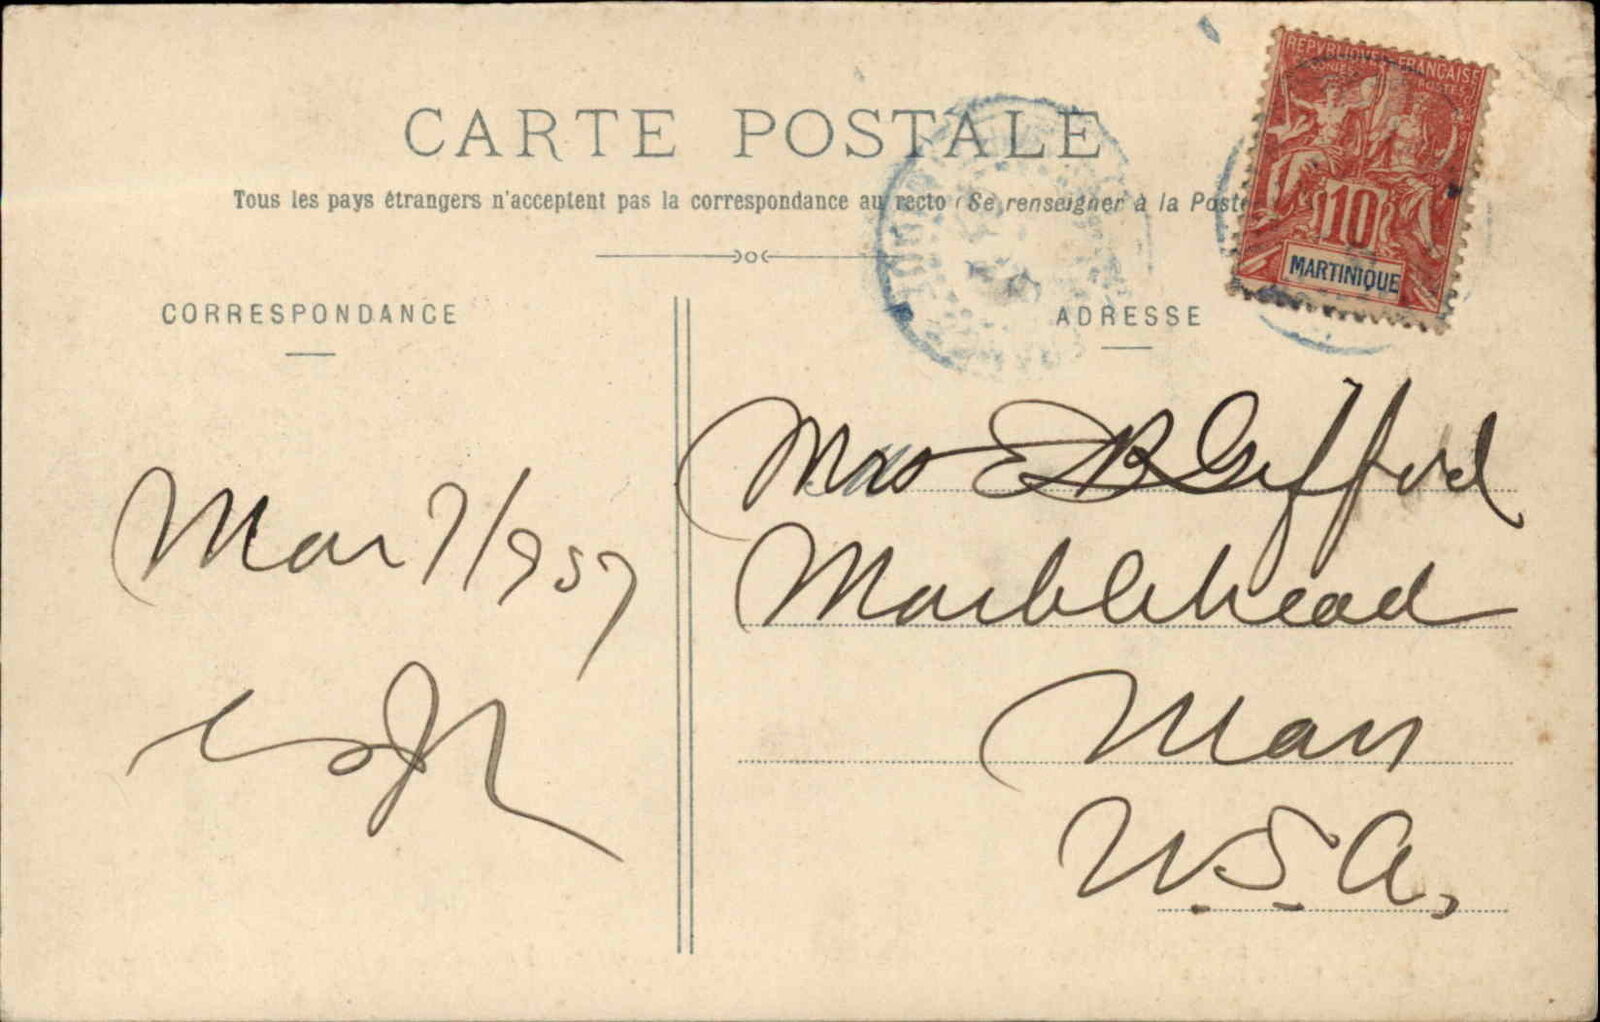 CARTE POSTALE
Tous les pays étrangers n'acceptent pas la correspondance au recto (Se renseigner à la Poste
REPVBLIQVE FRANÇAISE
COLONIES POSTES
10
MARTINIQUE
CORRESPONDANCE
ADRESSE
Mar 7/1907
Mrs E B Gifford
Marblehead
Mass
U.S.A.